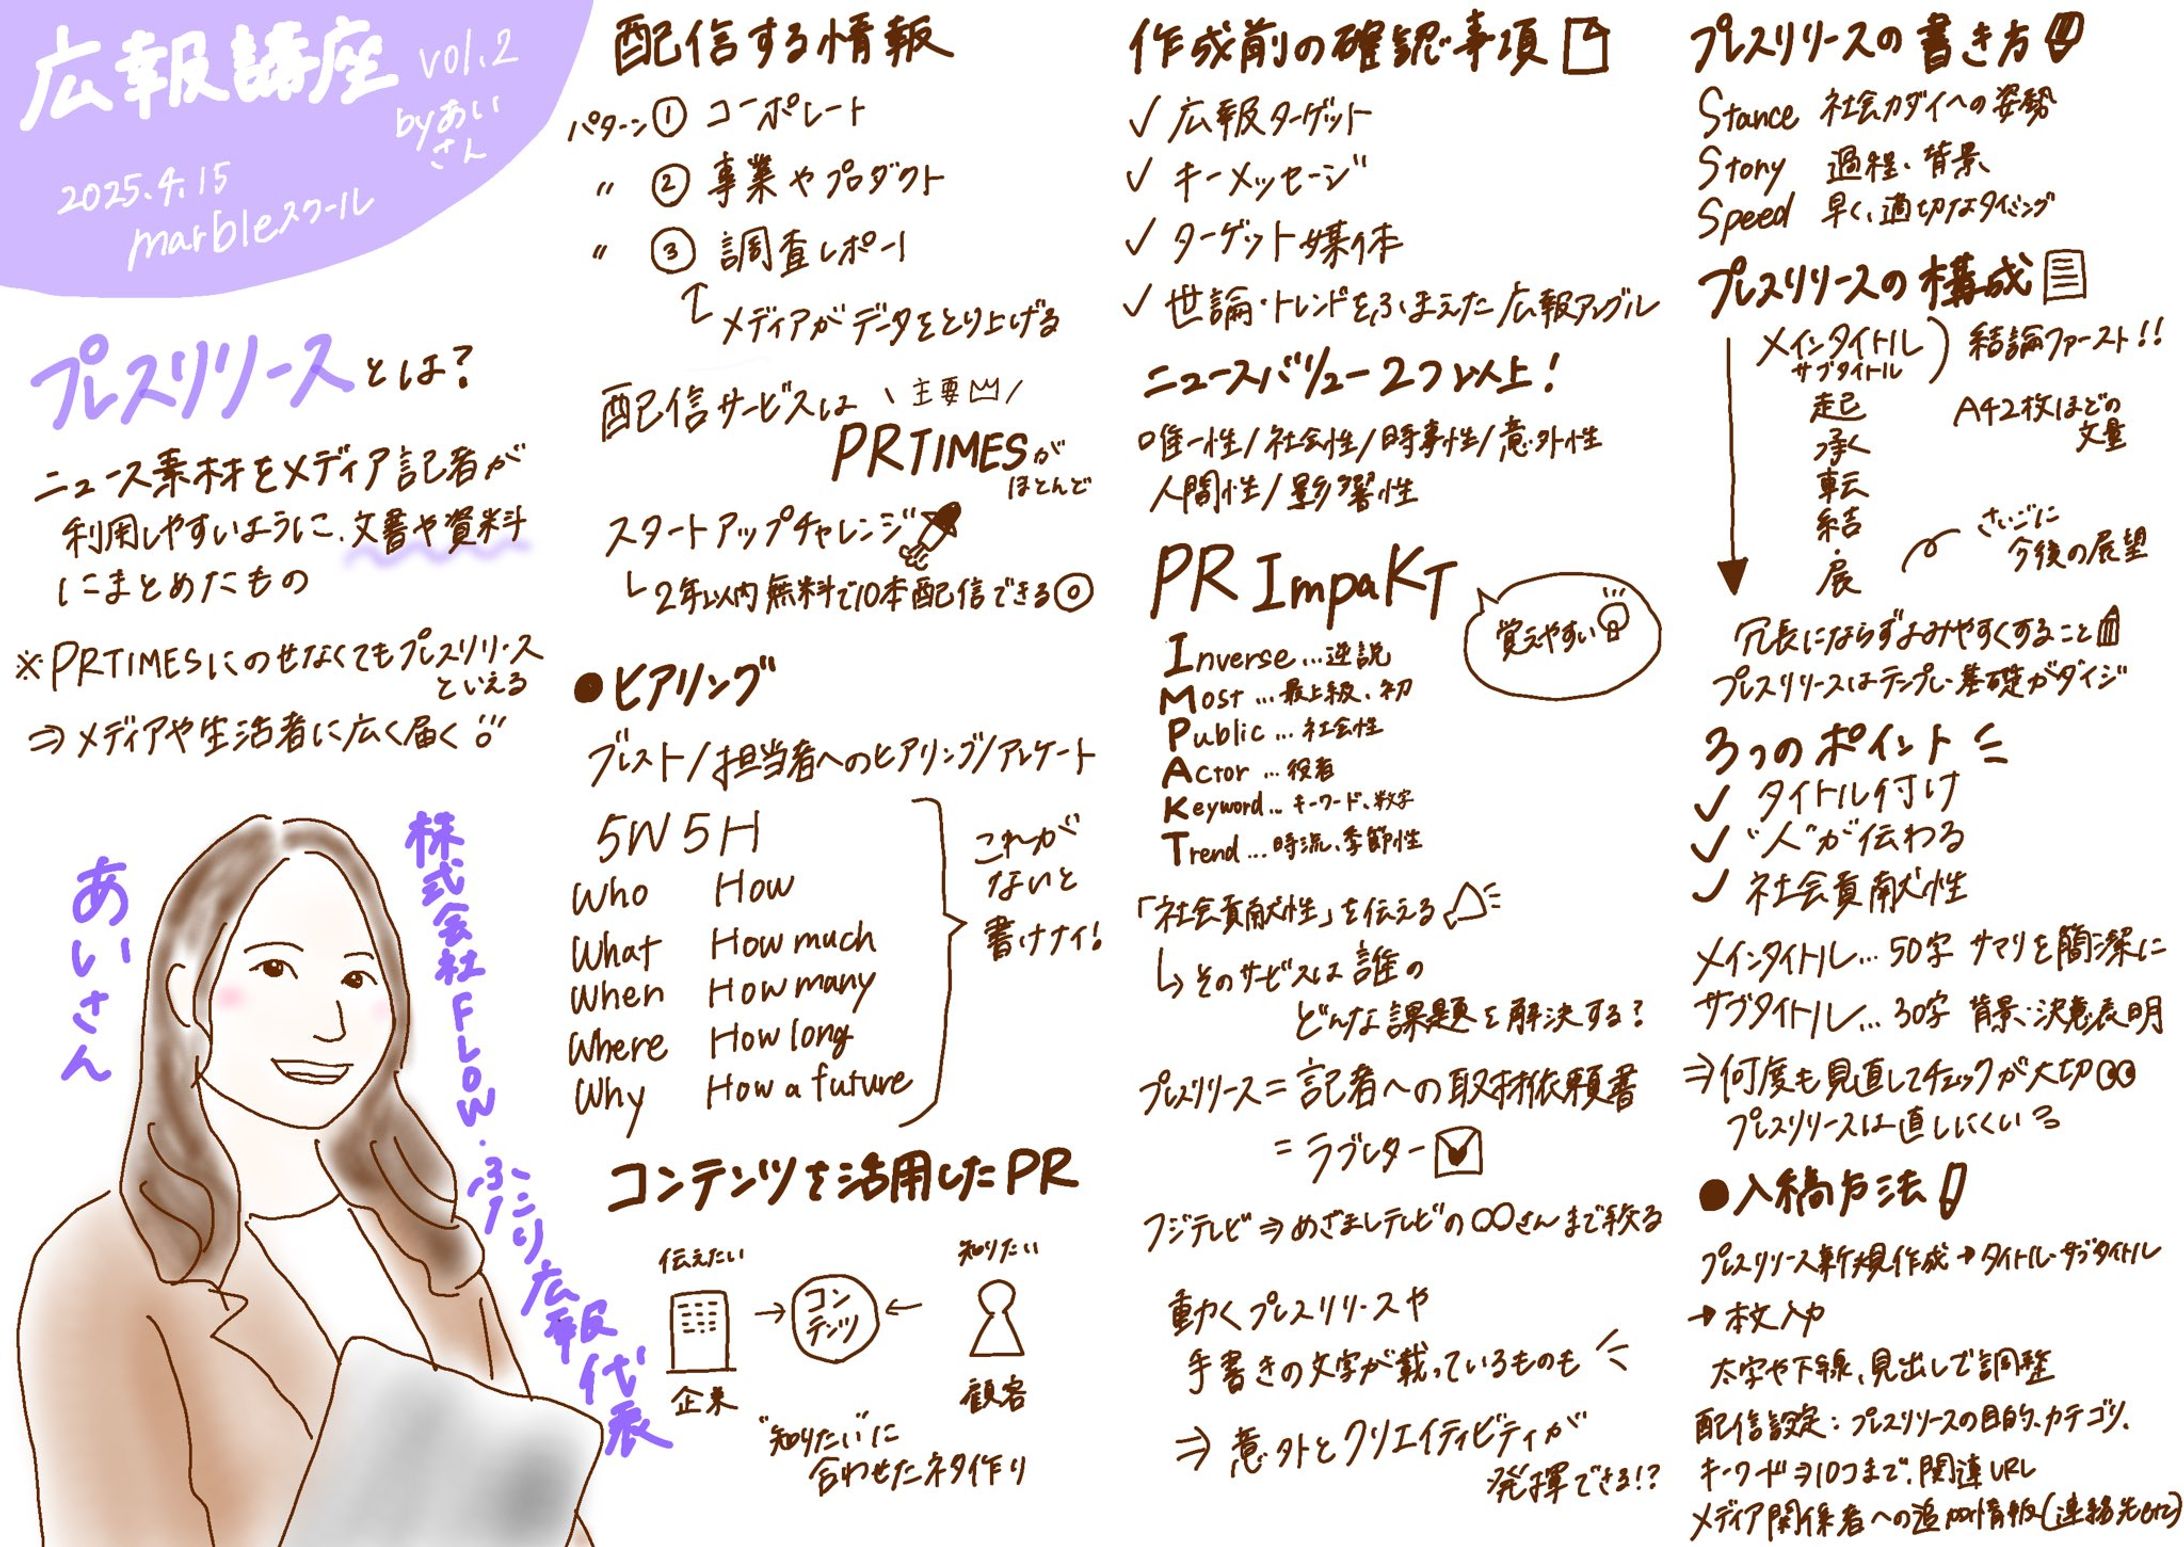 広報講座 vol.2
byあい
さん
2025.4.15
marbleスクール
プレスリリースとは?
ニュース素材をメディア記者が
利用しやすいように、文書や資料
にまとめたもの
※PRTIMESにのせなくてもプレスリリース
といえる
⇒メディアや生活者に広く届く
あいさん
株式会社FLOW.ふこり広報代表
配信する情報
パターン① コーポレート
〃 ② 事業やプロダクト
〃 ③ 調査レポート
メディアがデータをとり上げる
配信サービスは 主要
PRTIMESが
ほとんど
スタートアップチャレンジ
2年以内無料で10本配信できる◎
●ヒアリング
ブレスト/担当者へのヒアリング/アンケート
5W5H
Who How
What How much
When How many
Where How long
Why How a future
これが
ないと
書けナイ!
コンテンツを活用したPR
伝えたい 知りたい
→ コン
テンツ ←
企業 顧客
"知りたい"に
合わせたネタ作り
作成前の確認事項
✓ 広報ターゲット
✓ キーメッセージ
✓ ターゲット媒体
✓ 世論・トレンドをふまえた広報アングル
ニュースバリュー2つ以上!
唯一性/社会性/時事性/意外性
人間性/影響性
PR ImpaKT
覚えやすい
Inverse…逆説
Most…最上級、初
Public…社会性
Actor…役者
Keyword…キーワード、数字
Trend…時流、季節性
「社会貢献性」を伝える
そのサービスは誰の
どんな課題を解決する?
プレスリリース=記者への取材依頼書
=ラブレター
フジテレビ⇒めざましテレビの○○さんまで絞る
動くプレスリリースや
手書きの文字が載っているものも
⇒意外とクリエイティビティが
発揮できる!?
プレスリリースの書き方
Stance 社会カダイへの姿勢
Story 過程、背景
Speed 早く、適切なタイミング
プレスリリースの構成
メインタイトル
サブタイトル
結論ファースト!!
起
承
転
結
・
展
A42枚ほどの
文量
さいごに
今後の展望
冗長にならずよみやすくすること
プレスリリースはテンプレ・基礎がダイジ
3つのポイント
✓ タイトル付け
✓ "人"が伝わる
✓ 社会貢献性
メインタイトル…50字 サマリを簡潔に
サブタイトル…30字 背景・決意表明
⇒何度も見直してチェックが大切
プレスリリースは直しにくい
●入稿方法
プレスリリース新規作成→タイトル・サブタイトル
→本文入力
太字や下線、見出しで調整
配信設定:プレスリリースの目的、カテゴリ、
キーワード⇒10コまで、関連URL
メディア関係者への追加情報(連絡先etc)